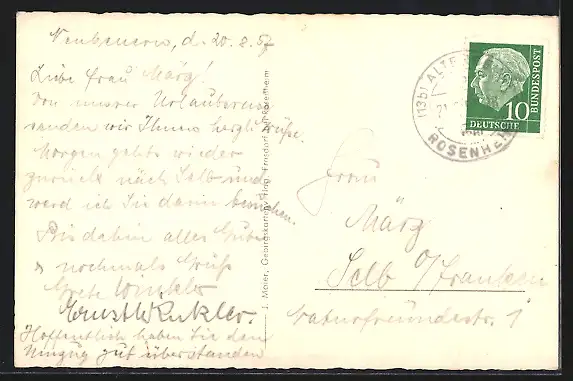 Neubeuern, d. 20.8.57
Liebe Frau März!
Von unserer Urlaubsreise
senden wir Ihnen herzl. Grüße.
Morgen gehts wieder
zurück nach Selb und
werd ich Sie dann besuchen.
Bis dahin alles Gute
u. nochmals Grüß
Grete Winkler
Ernst Winkler.
Hoffentlich haben Sie den
Umzug gut überstanden
J. Meier, Gebirgskarten
(13b) ALTE
ROSENHEIM
10
DEUTSCHE
BUNDESPOST
Frau
März
Selb O/Franken
Naturfreundestr. 1